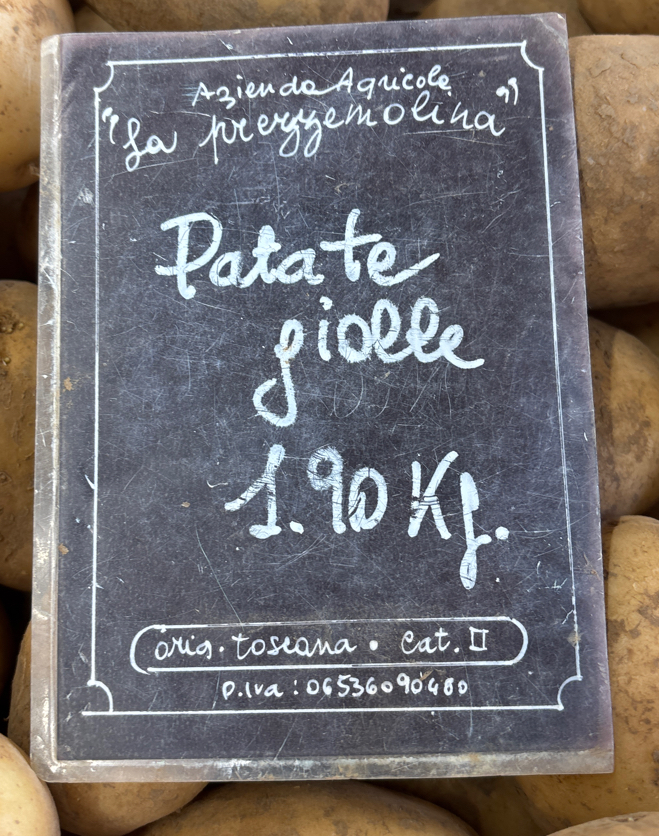 Azienda Agricola
"La prezzemolina"
Patate
gialle
1.90 Kg.
orig. toscana • cat. II
P.iva : 06536090480